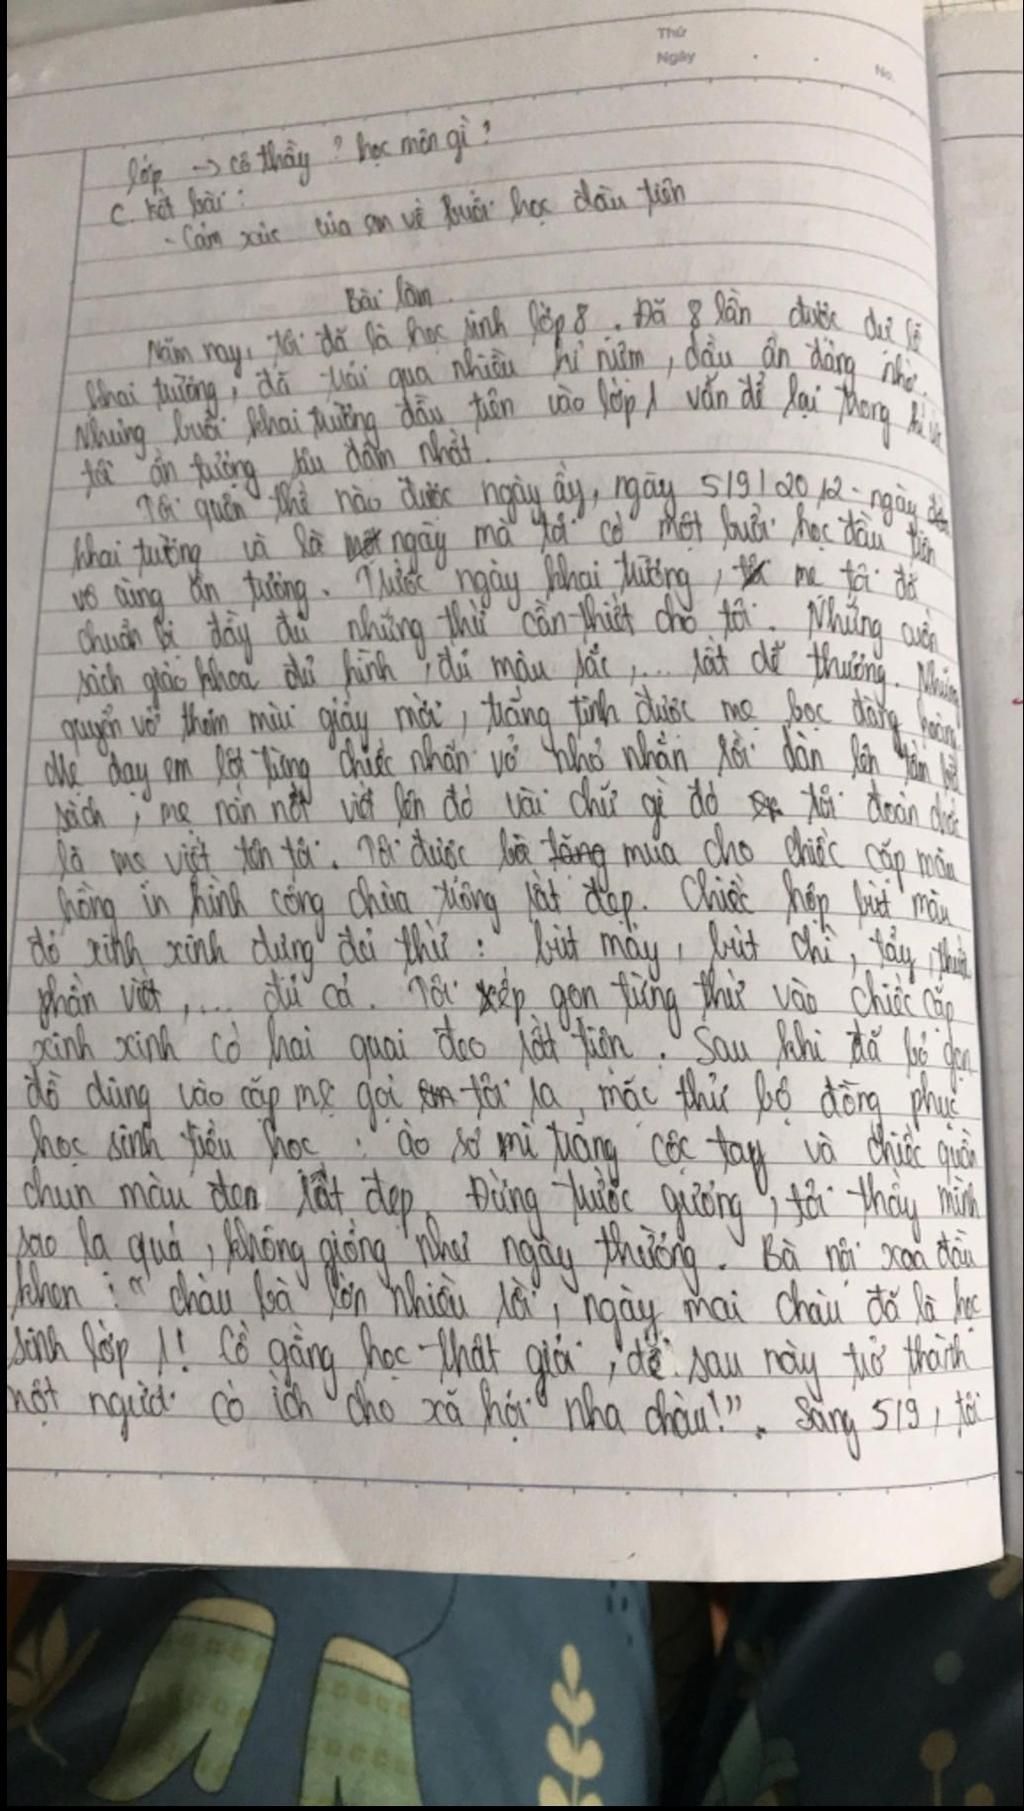 Thứ
Ngày
No.
lớp → cô thầy ? học môn gì ?
C. Kết bài :
- Cảm xúc của em về buổi học đầu tiên
Bài làm
Năm nay, tôi đã là học sinh lớp 8. Đã 8 lần được dự lễ
khai trường, đã trải qua nhiều kỉ niệm, dấu ấn đáng nhớ.
Nhưng buổi khai trường đầu tiên vào lớp 1 vẫn để lại trong kí ức
tôi ấn tượng sâu đậm nhất.
Tôi quên thế nào được ngày ấy, ngày 5/9/2012 - ngày
khai trường và là ngày mà tôi có một buổi học đầu tiên
vô cùng ấn tượng. Trước ngày khai trường, mẹ tôi đã
chuẩn bị đầy đủ những thứ cần thiết cho tôi. Những cuốn
sách giáo khoa đủ hình, đủ màu sắc,... rất dễ thương. Những
quyển vở thơm mùi giấy mới, trắng tinh được mẹ bọc đàng hoàng
Mẹ dạy em lột từng chiếc nhãn vở nhỏ nhắn rồi dán lên tấm bọc
sách, mẹ nắn nót viết lên đó vài chữ gì đó tôi đoán được
là mẹ viết tên tôi. Tôi được bà tặng mua cho chiếc cặp màu
hồng in hình công chúa trông rất đẹp. Chiếc hộp bút màu
đỏ xinh xinh đựng đủ thứ : bút máy, bút chì, tẩy, thước
phấn viết,... đủ cả. Tôi xếp gọn từng thứ vào chiếc cặp
xinh xinh có hai quai đeo rất tiện. Sau khi đã bỏ gọn
đồ dùng vào cặp mẹ gọi tôi ra, mặc thử bộ đồng phục
học sinh tiểu học : áo sơ mi trắng cộc tay và chiếc quần
chun màu đen rất đẹp. Đứng trước gương, tôi thấy mình
sao lạ quá, không giống như ngày thường. Bà nội xoa đầu
khen : "cháu bà lớn nhiều rồi, ngày mai cháu đã là học
sinh lớp 1! Cố gắng học thật giỏi, để sau này trở thành
một người có ích cho xã hội nha cháu!". Sáng 5/9, tôi